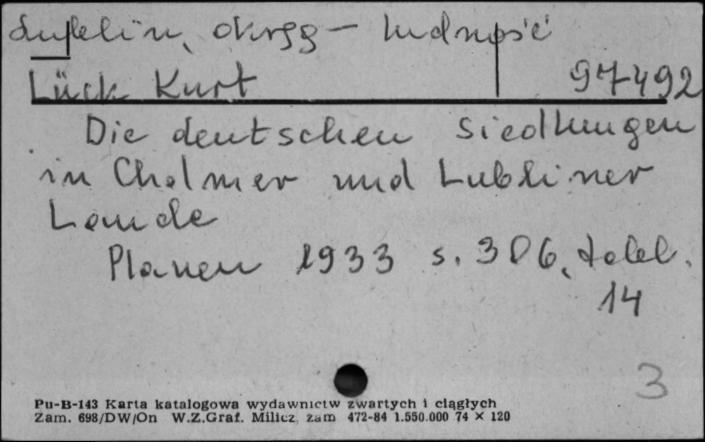 Lublin, okręg - ludność
Lück Kurt 97492
Die deutschen Siedlungen
in Cholmer und Lubliner
Lande
Plauen 1933 s. 306, tabl.
14
3
Pu-B-143 Karta katalogowa wydawnictw zwartych i ciągłych
Zam. 698/DW/On W.Z.Graf. Milicz zam 472-84 1.550.000 74 × 120